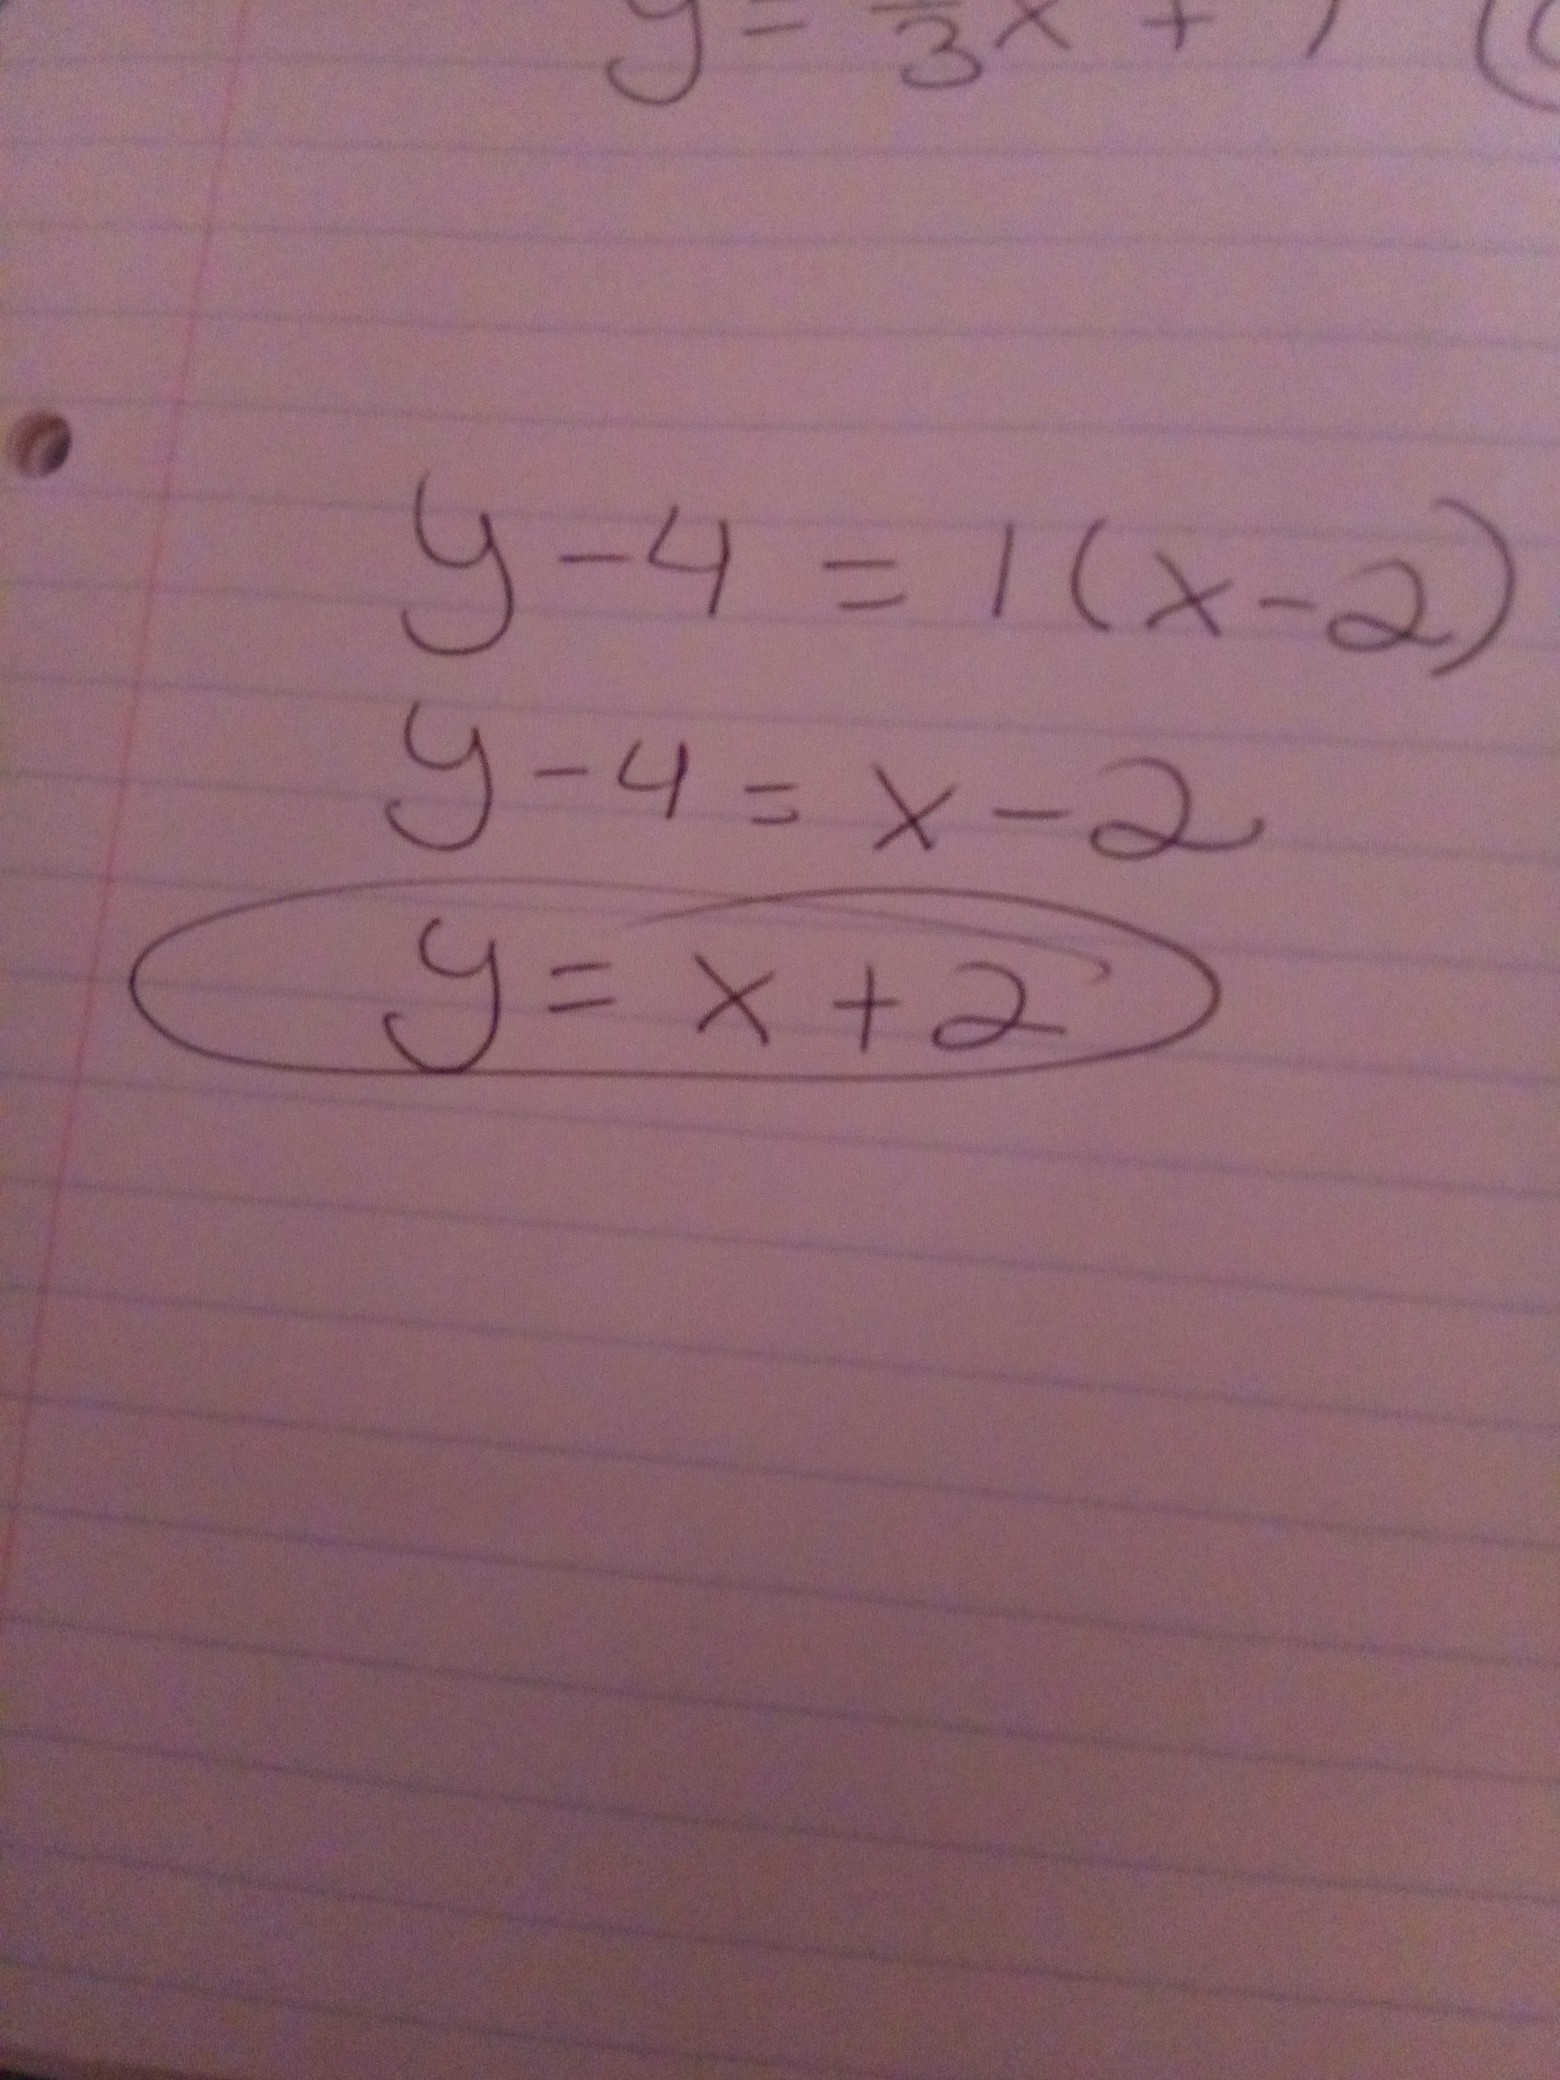 y = /3 x +
y - 4 = 1(x - 2)
y - 4 = x - 2
y = x + 2